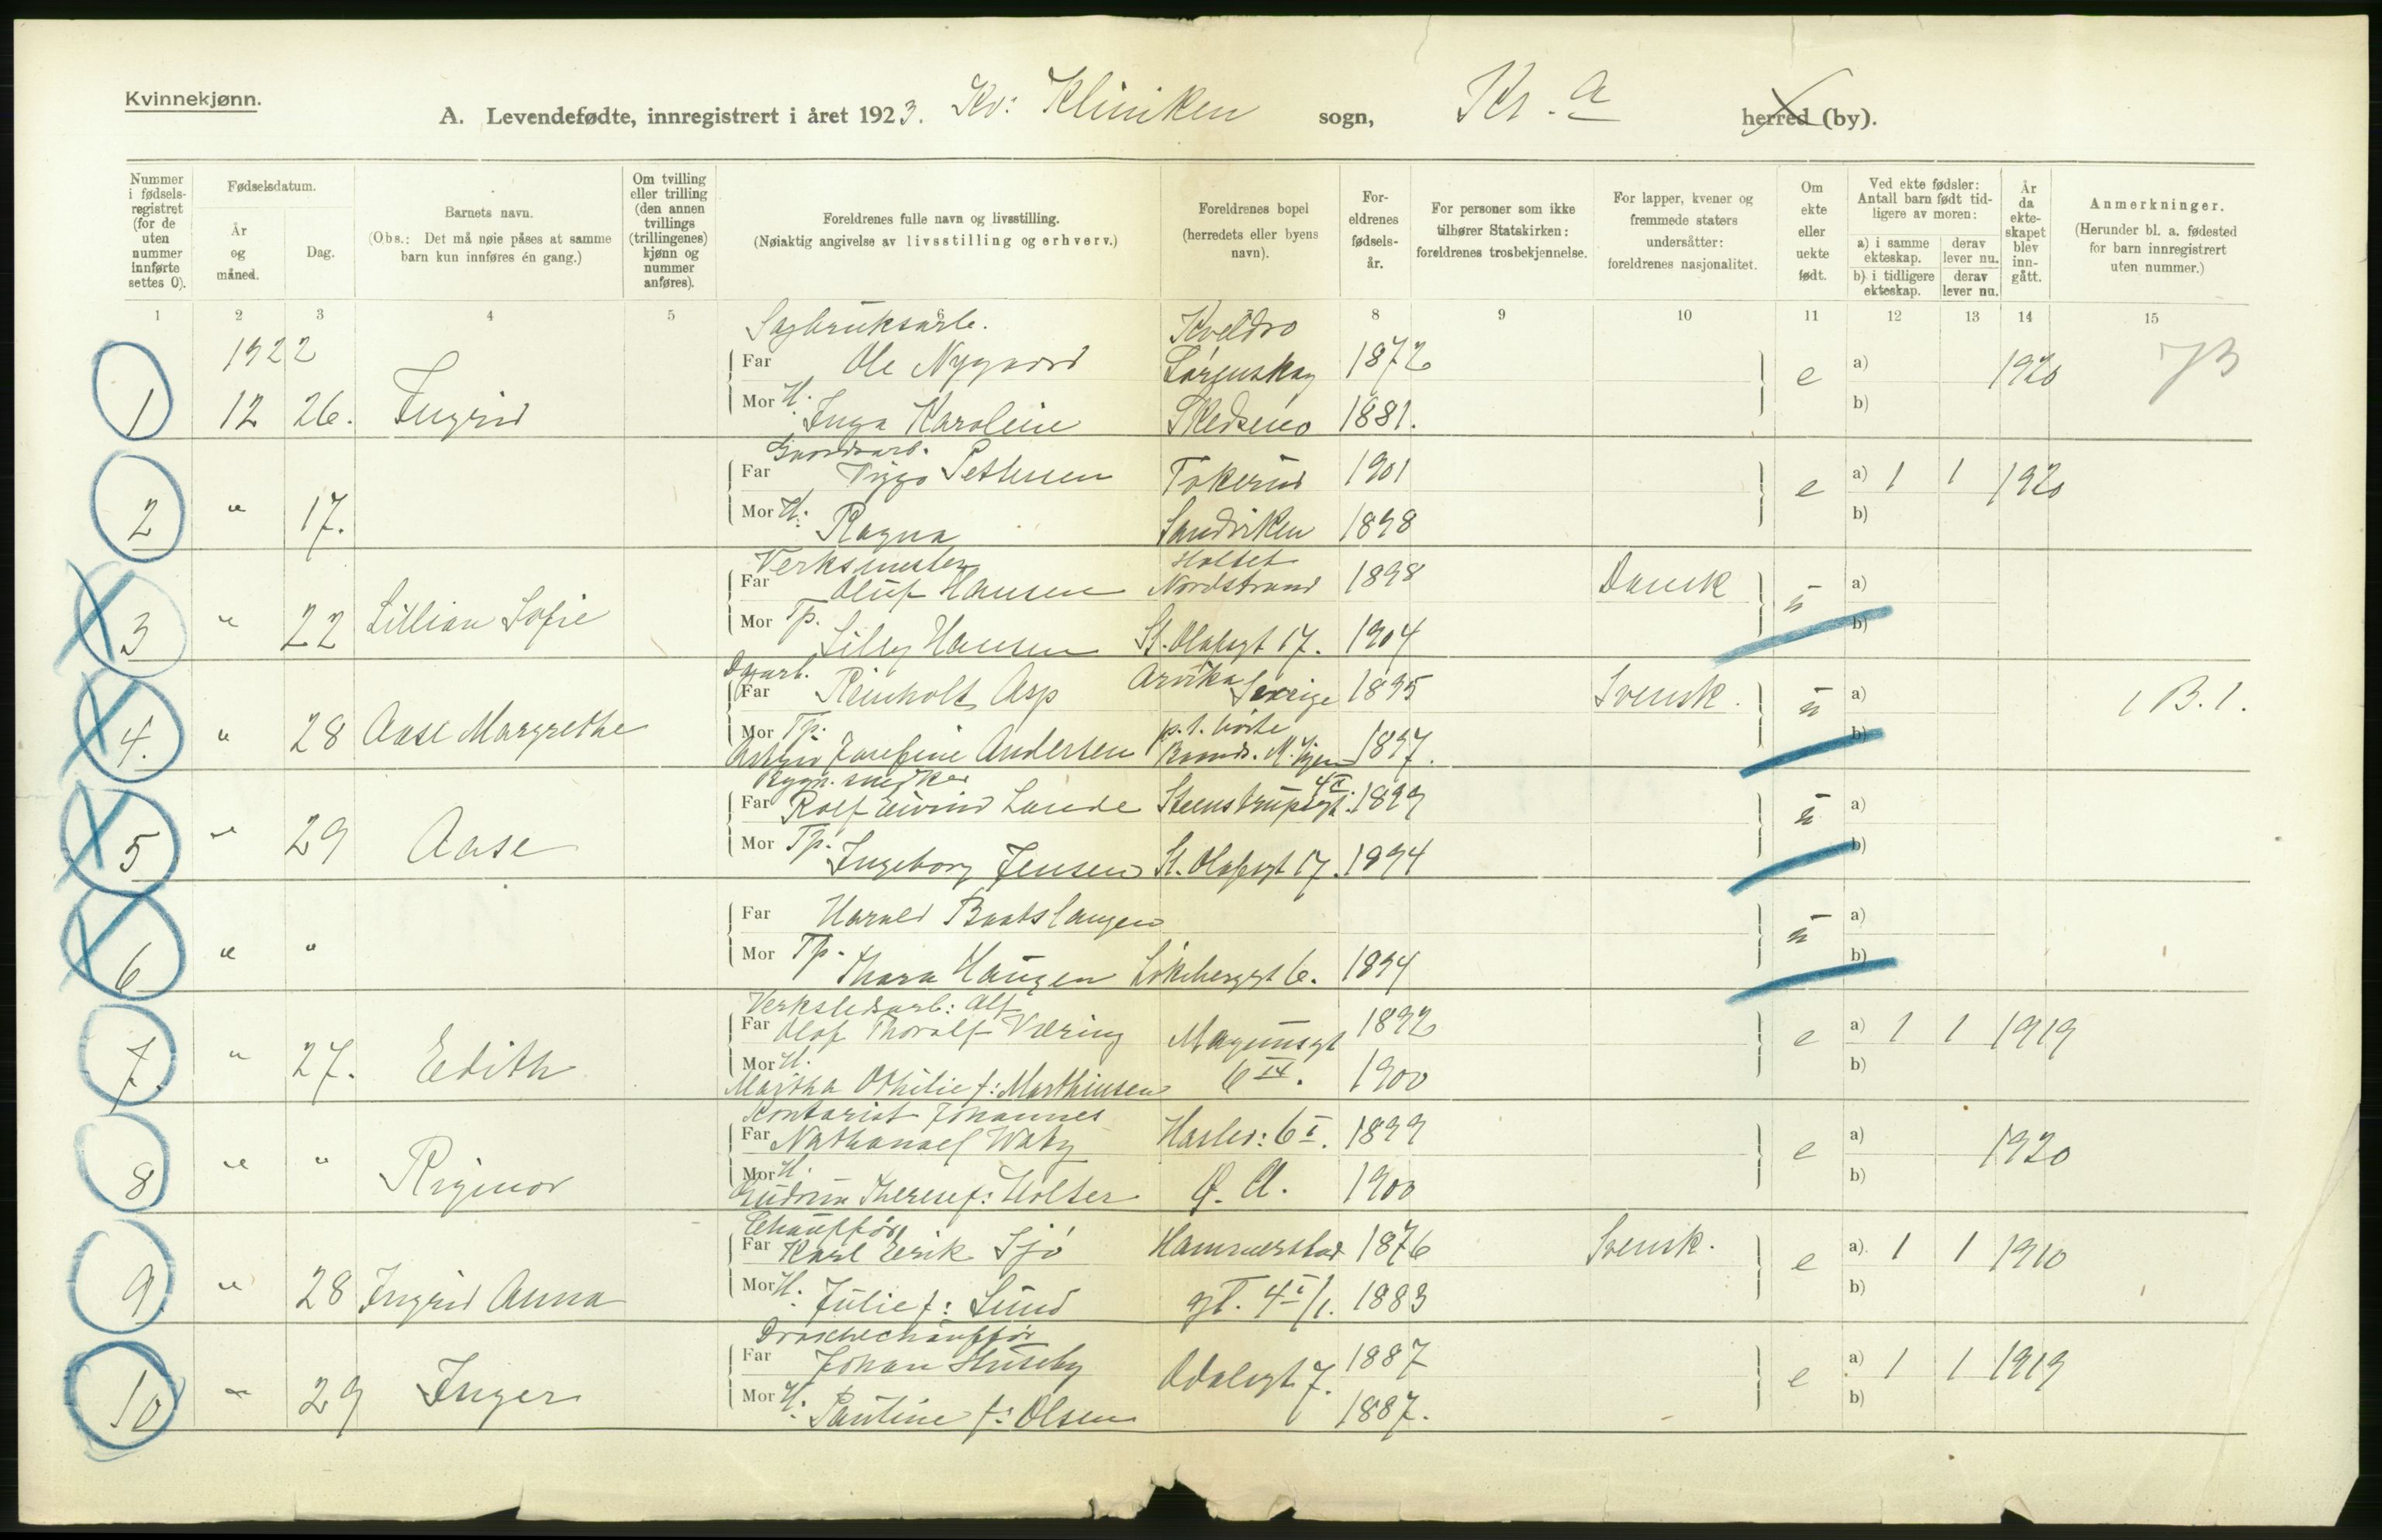 Kvinnekjønn.
A. Levendefødte, innregistrert i året 1923. Kv: Kliniken sogn, Kr.a herred (by).
Nummer i fødsels-registret (for de uten nummer innførte settes 0).
Fødselsdatum.
År og måned.
Dag.
Barnets navn.
(Obs.: Det må nøie påses at samme barn kun innføres én gang.)
Om tvilling eller trilling (den annen tvillings (trillingenes) kjønn og nummer anføres).
Foreldrenes fulle navn og livsstilling.
(Nøiaktig angivelse av livsstilling og erhverv.)
Foreldrenes bopel (herredets eller byens navn).
For-eldrenes fødsels-år.
For personer som ikke tilhører Statskirken: foreldrenes trosbekjennelse.
For lapper, kvener og fremmede staters undersåtter: foreldrenes nasjonalitet.
Om ekte eller uekte født.
Ved ekte fødsler: Antall barn født tid-ligere av moren:
a) i samme ekteskap.
derav lever nu.
b) i tidligere ekteskap.
derav lever nu.
År da ekte-skapet blev inn-gått.
Anmerkninger.
(Herunder bl. a. fødested for barn innregistrert uten nummer.)
1 2 3 4 5 8 9 10 11 12 13 14 15
1922
Sagbruksarb.
Far Ole Nygaard Lørenskog 1872
1 12 26. Ingrid e a) b) 1920
Mor H. Inga Karoline Skedsmo 1881.
Gaardsarb.
Far Viggo Pettersen 1901
2 " 17. e a) 1 1 b) 1920
Mor H. Ragna Sandviken 1898
Verksmester Holtet
Far Oluf Hansen Nordstrand 1898 Dansk
3 " 22 Lillian Sofie u a) b)
Mor Tp. Lilly Hansen St. Olafsgt 17. 1904
Far Reinholt Asp Arvika Sverige 1895 Svensk.
4. " 28 Aase Margrethe u a) b) 1 B. 1.
Mor Tp. Josefine Andersen 1897.
Far Rolf Eivind Lunde Steenstrupsgt. 1899
5 " 29 Aase u a) b)
Mor Tp. Ingeborg Jensen St. Olafsgt 17. 1894
Far Harald Baatslaugen
6 " " u a) b)
Mor Tp. Thora Haugen Løkkeberggt 6. 1894
Far Olaf Thoralf Væring Magnusgt 1892
7. " 27. Edith e a) 1 1 b) 1919
Mor H. Martha Othilie f: Marthinsen 6 IV. 1900
Kontorist Johannes
Far Nathanael Haslev: 6 I. 1899
8 " " Rigmor e a) b) 1920
Mor H. Gudrun Therese f: Holter Ø. A. 1900
Chauffør
Far Karl Erik Sjö Hammerstad 1876 Svensk.
9 " 28 Ingrid Anna e a) 1 1 b) 1910
Mor H. Julie f: Lund gt. 4 I/1. 1883
Droschechauffør
Far Johan Huseby Odalsgt 7. 1887
10 " 29 Inger e a) 1 1 b) 1919
Mor H. Pauline f: Olsen 1887.